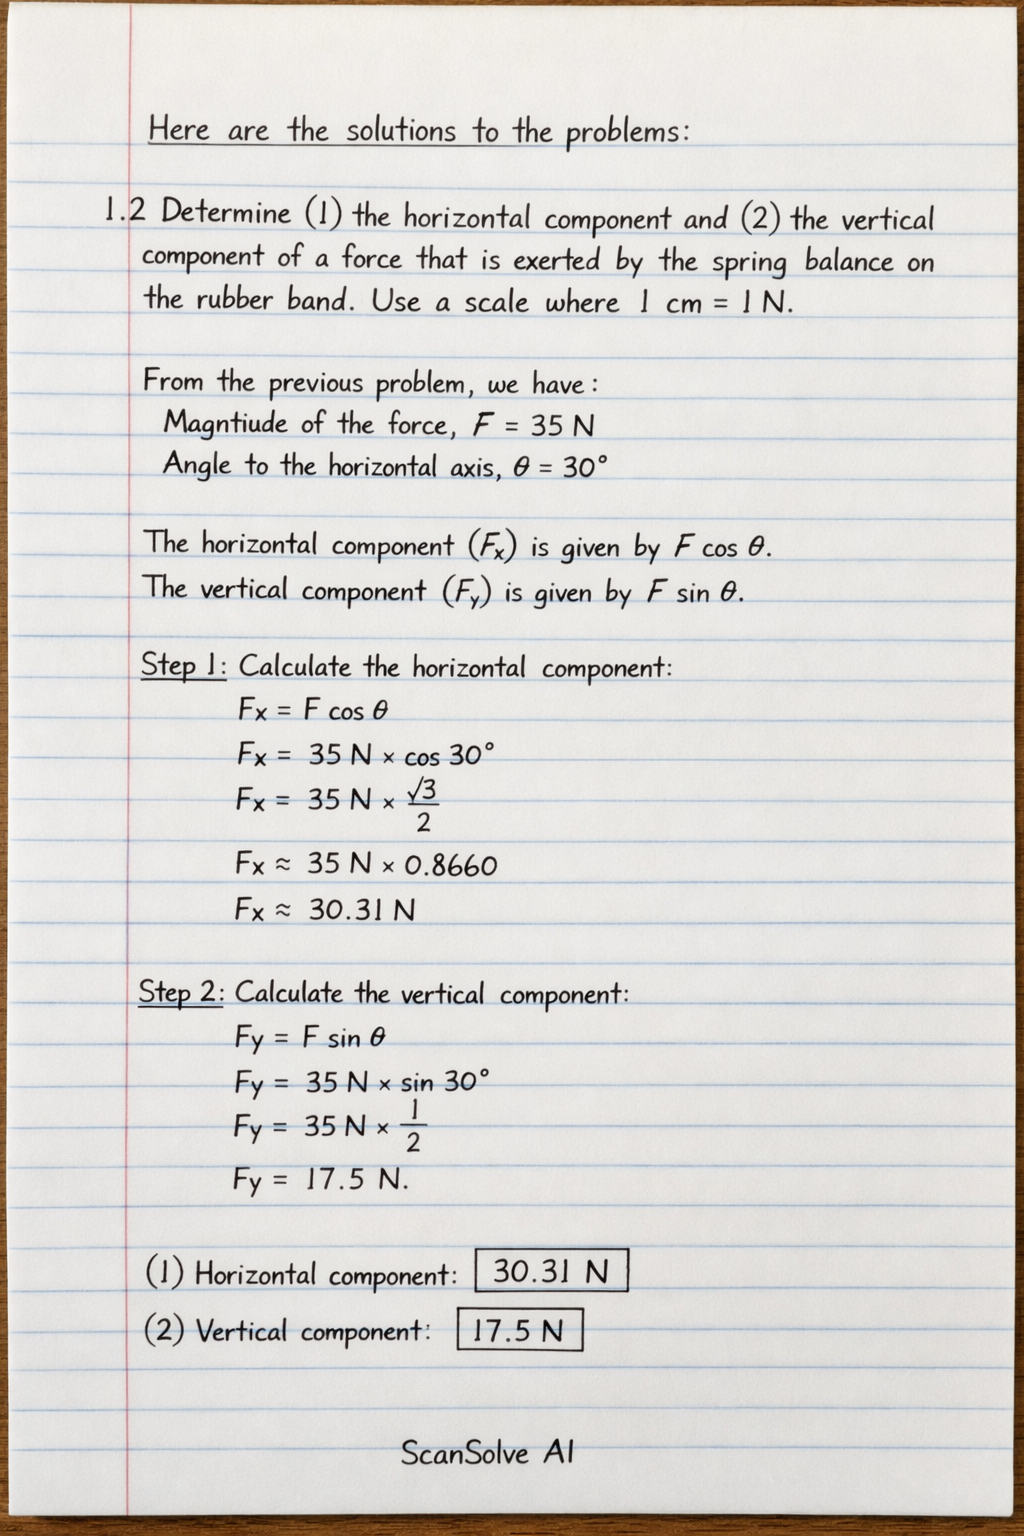 Here are the solutions to the problems:
1.2 Determine (1) the horizontal component and (2) the vertical
component of a force that is exerted by the spring balance on
the rubber band. Use a scale where 1 cm = 1 N.
From the previous problem, we have:
Magntiude of the force, F = 35 N
Angle to the horizontal axis, θ = 30°
The horizontal component (Fₓ) is given by F cos θ.
The vertical component (Fᵧ) is given by F sin θ.
Step 1: Calculate the horizontal component:
Fx = F cos θ
Fx = 35 N × cos 30°
Fx = 35 N × √3/2
Fx ≈ 35 N × 0.8660
Fx ≈ 30.31 N
Step 2: Calculate the vertical component:
Fy = F sin θ
Fy = 35 N × sin 30°
Fy = 35 N × 1/2
Fy = 17.5 N.
(1) Horizontal component: 30.31 N
(2) Vertical component: 17.5 N
ScanSolve AI